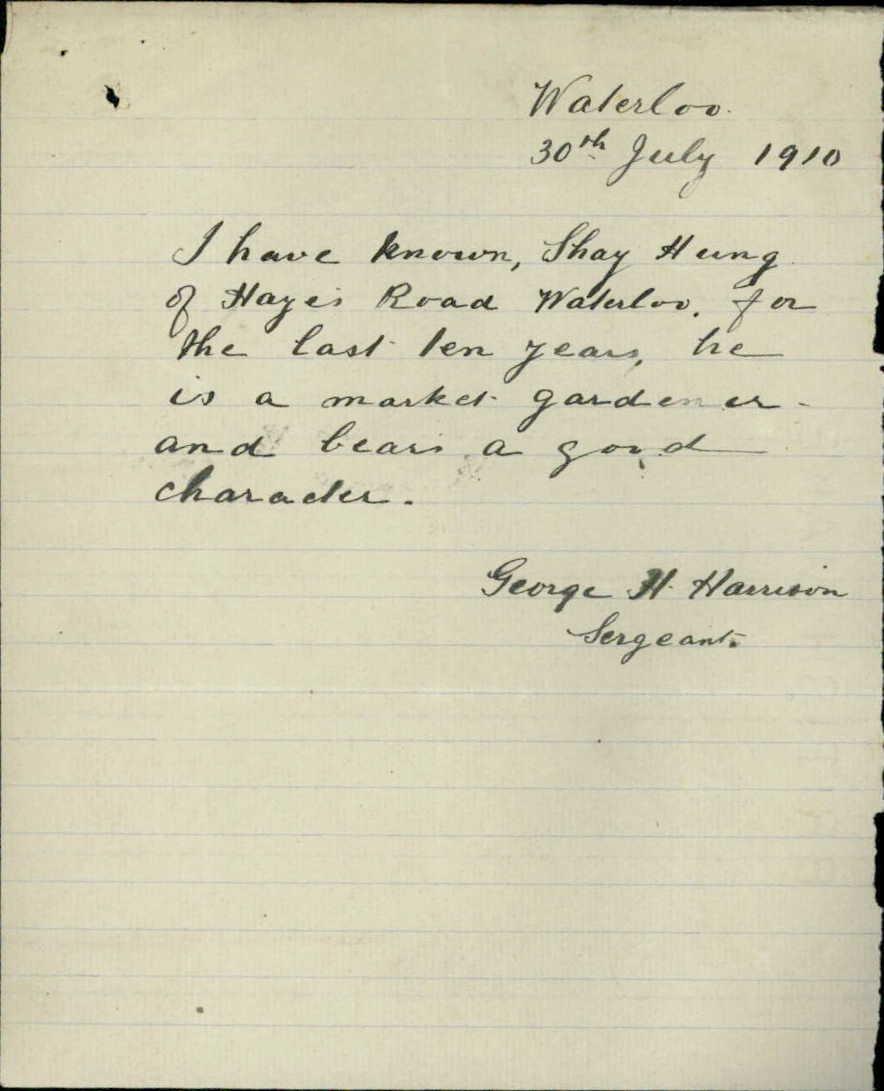 Waterloo.
30th July 1910
I have known, Shay Hung
of Hayes Road Waterloo. for
the last ten years, he
is a market gardener
and bears a good
character.
George H. Harrison
Sergeant.